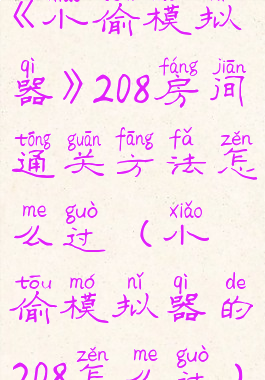 《小偷模拟
qì fáng jiān
器》208房间
tōng guān fāng fǎ zěn
通关方法怎
me guò xiǎo
么过(小
tōu mó nǐ qì de
偷模拟器的
zěn me guò
208怎么过)